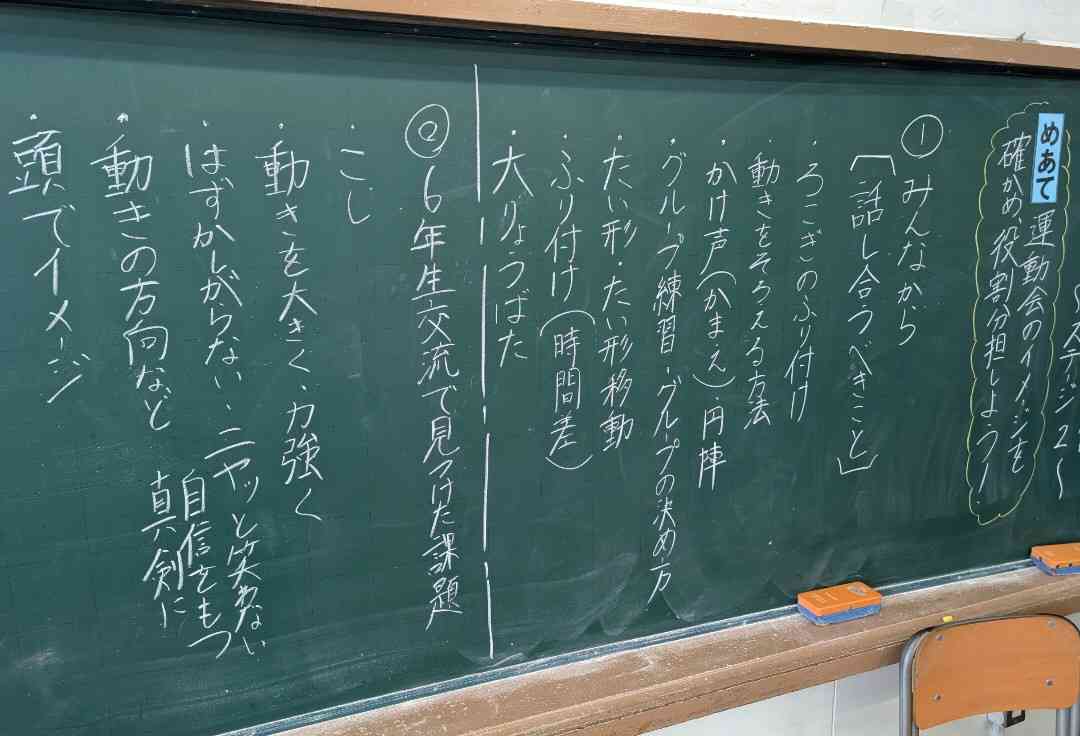 ステージ2〜
めあて 運動会のイメージを
確かめ、役割分担しよう!
① みんなから
「話し合うべきこと」
・ろこぎのふり付け
・動きをそろえる方法
・かけ声(かまえ)・円陣
・グループ練習・グループの決め方
・たい形・たい形移動
・ふり付け(時間差)
・大りょうばた
② 6年生交流で見つけた課題
・こし
・動きを大きく、力強く
・はずかしがらない・ニヤッと笑わない
自信をもつ
真剣に
・動きの方向など
・頭でイメージ